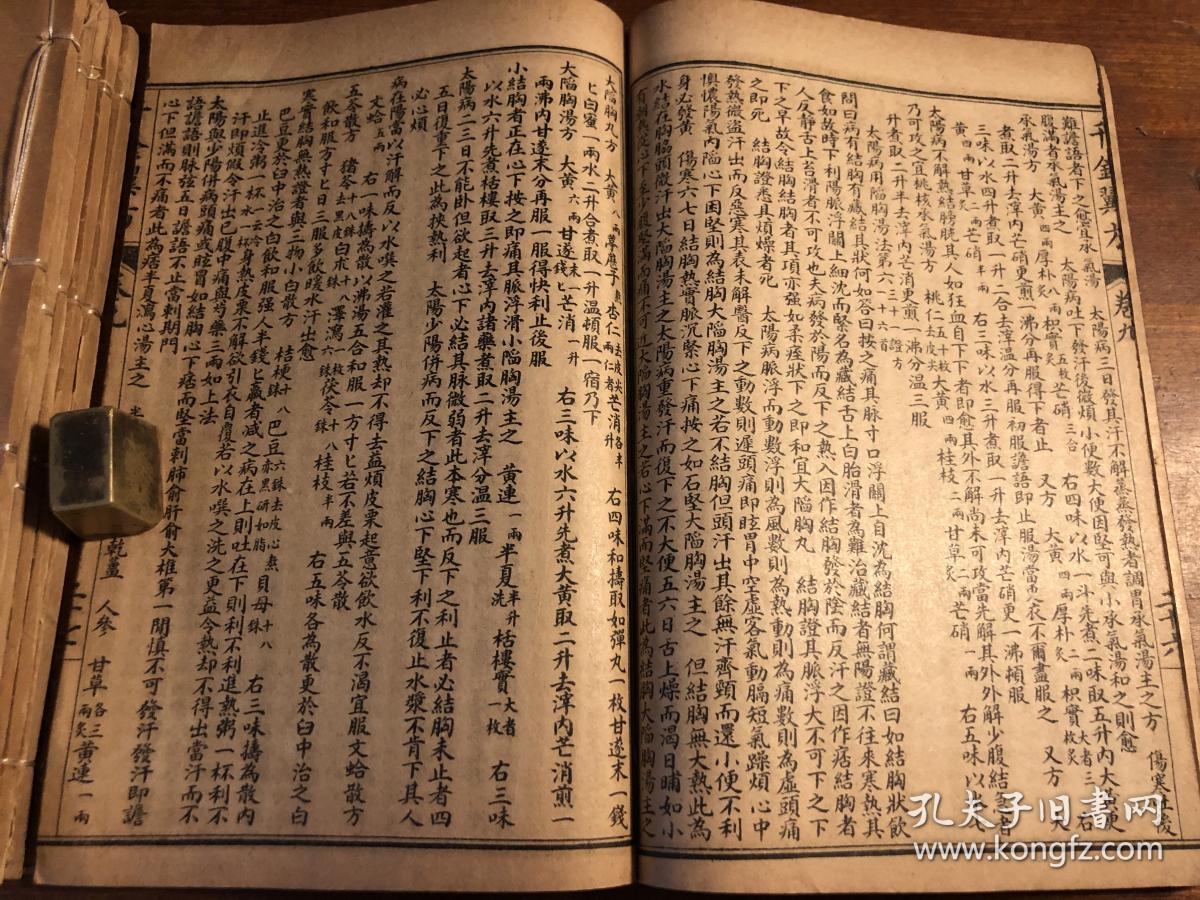 難譫語者下之愈宜承氣湯
太陽病三日發其汗不解蒸蒸發熱者調胃承氣湯主之方
傷寒吐後
腹滿者承氣湯主之
太陽病吐下發汗後微煩小便數大便因堅可與小承氣湯和之則愈
承氣湯方 大黃四兩 厚朴八兩 枳實五枚炙 芒硝三合 右四味以水一斗先煮二味取五升內大黃更
煮取二升去滓內芒硝更煎一沸分再服得下者止 又方 大黃四兩 厚朴二兩炙 枳實大者三枚炙 右
三味以水四升煮取一升二合去滓溫分再服初服譫語即止服湯當更衣不爾盡服之 又方 大
黃四兩 甘草二兩炙 芒硝半兩 右三味以水三升煮取一升去滓內芒硝更一沸頓服
太陽病不解熱結膀胱其人如狂血自下下者即愈其外不解尚未可攻當先解其外外解少腹結急者
乃可攻之宜桃核承氣湯方 桃仁五十枚去皮尖 大黃四兩 桂枝二兩 甘草二兩炙 芒硝一兩 右五味以水七
升煮取二升半去滓內芒硝更煎一沸分溫三服
太陽病用陷胸湯法第六三十一證方一十六首
問曰病有結胸有藏結其狀何如答曰按之痛其脉寸口浮關上自沈為結胸何謂藏結曰如結胸狀飲
食如故時下利陽脉浮關上細沈而緊名為藏結舌上白胎滑者為難治藏結者無陽證不往來寒熱其
人反靜舌上苔滑者不可攻也夫病發於陽而反下之熱入因作結胸發於陰而反汗之因作痞結胸者
下之早故令結胸結胸者其項亦強如柔痓狀下之即和宜大陷胸丸 結胸證其脉浮大不可下之下
之即死 結胸證悉具煩燥者死 太陽病脉浮而動數浮則為風數則為熱動則為痛數則為虛頭痛
發熱微盜汗出而反惡寒其表未解醫反下之動數則遲頭痛即眩胃中空虛客氣動膈短氣躁煩心中
懊憹陽氣內陷心下因堅則為結胸大陷胸湯主之若不結胸但頭汗出其餘無汗齊頸而還小便不利
身必發黃 傷寒六七日結胸熱實脉沉緊心下痛按之如石堅大陷胸湯主之 但結胸無大熱此為
水結在胸脇頭微汗出大陷胸湯主之太陽病重發汗而復下之不大便五六日舌上燥而渴日晡如小
有潮熱從心下至少腹堅滿而痛不可近大陷胸湯主之若心下滿而堅痛者此為結胸大陷胸湯主之
千金翼方 卷九
二十六
大陷胸丸方 大黃八兩 葶藶子熬 杏仁去皮尖兩仁者 芒消各半升 右四味和擣取如彈丸一枚甘遂末一錢
匕白蜜一兩水二升合煮取一升溫頓服一宿乃下
大陷胸湯方 大黃六兩 甘遂末一錢匕 芒消一升 右三味以水六升先煮大黃取二升去滓內芒消煎一
兩沸內甘遂末分再服一服得快利止後服
小結胸者正在心下按之即痛其脉浮滑小陷胸湯主之 黃連一兩 半夏半升洗 栝樓實大者一枚 右三味
以水六升先煮栝樓取三升去滓內諸藥煮取二升去滓分溫三服
太陽病二三日不能臥但欲起者心下必結其脉微弱者此本寒也而反下之利止者必結胸未止者四
五日復重下之此為挾熱利 太陽少陽併病而反下之結胸心下堅下利不復止水漿不肯下其人
必心煩
病在陽當以汗解而反以水噀之若灌之其熱却不得去益煩皮粟起意欲飲水反不渴宜服文蛤散方
文蛤五兩 右一味擣為散以沸湯五合和服一方寸匕若不差與五苓散
五苓散方 猪苓十八銖去黑皮 白朮十八銖 澤瀉一兩六銖 茯苓十八銖 桂枝半兩 右五味各為散更於臼中治之白
飲和服方寸匕日三服多飲暖水汗出愈
寒實結胸無熱證者與三物小白散方 桔梗十八銖 巴豆六銖去皮心熬赤黑研如脂 貝母十八銖 右三味擣為散內
巴豆更於臼中治之白飲和服强人半錢匕羸者減之病在上則吐在下則利不利進熱粥一杯利不
止進冷粥一杯一云冷水一杯 身熱皮粟不解欲引衣自覆若以水噀之洗之更益令熱却不得出當汗而不
汗即煩假令汗出已腹中痛與芍藥三兩如上法
太陽與少陽併病頭痛或眩冒如結胸心下痞而堅當刺肺俞肝俞大椎第一間慎不可發汗發汗即譫
語譫語則脉弦五日譫語不止當刺期門
心下但滿而不痛者此為痞半夏瀉心湯主之 半
乾薑 人參 甘草各三兩炙 黃連一兩
孔夫子旧書网
www.kongfz.com